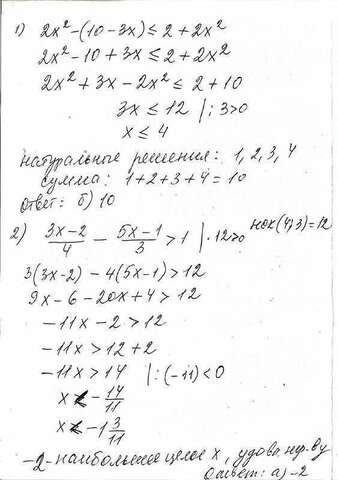 1) 2x² - (10 - 3x) ≤ 2 + 2x²
2x² - 10 + 3x ≤ 2 + 2x²
2x² + 3x - 2x² ≤ 2 + 10
3x ≤ 12 | : 3>0
x ≤ 4
натуральные решения: 1, 2, 3, 4
сумма: 1+2+3+4=10
ответ: б) 10
2) (3x-2)/4 - (5x-1)/3 > 1 | ·12>0 НОК(4;3)=12
3(3x-2) - 4(5x-1) > 12
9x - 6 - 20x + 4 > 12
-11x - 2 > 12
-11x > 12 + 2
-11x > 14 | : (-11) < 0
x < - 14/11
x < -1 3/11
-2 - наибольшее целое x, удовл нер-ву
Ответ: а) -2